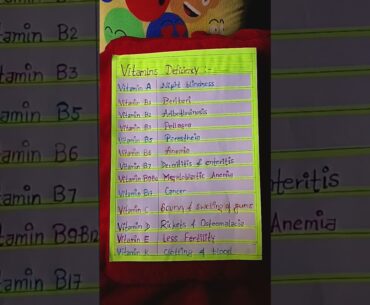 Vitamins Deficiency :-
Vitamin A Night blindness
Vitamin B1 Beriberi
Vitamin B2 Ariboflavinosis
Vitamin B3 Pellagra
Vitamin B5 Paresthesia
Vitamin B6 Anemia
Vitamin B7 Dermatitis & enteritis
Vitamin B9B12 Megaloblastic Anemia
Vitamin B17 Cancer
Vitamin C Scurvy & Swelling of gums
Vitamin D Rickets & Osteomalacia
Vitamin E Less Fertility
Vitamin K Clotting of blood
tamin B2
amin B3
amin B5
amin B6
amin B7
amin B9B12
amin B17
nteritis
Anemia